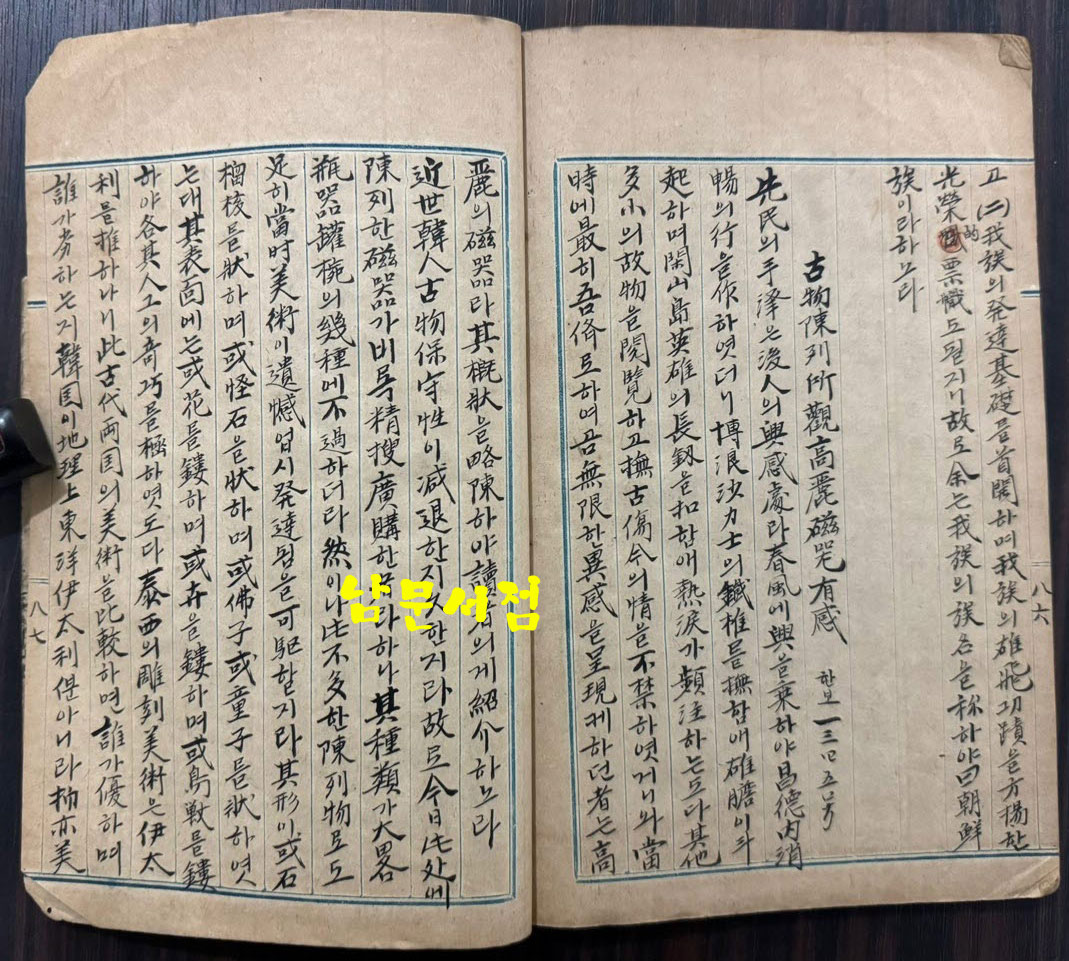 고 (二)我族의 発達基礎를 首闢하며 我族의 雄飛功蹟을 方揚한
光榮的 票幟도 될지니 故로 余는 我族의 族名을 称하야 曰 朝鮮
族이라 하노라
古物陳列所觀高麗磁器有感 한보 一三口五号
先民의 手澤은 後人의 興感處라 春風에 興을 乘하야 昌德內消
暢의 行을 作하엿더니 博浪沙力士의 鐵椎를 撫함애 雄膽이 斗
起하며 閑山島英雄의 長釼을 和함애 熱淚가 類注하는도다 其他
多小의 故物을 閱覽하고 撫古傷今의 情을 不禁하엿거니와 當
時에 最히 吾儕로 하여곰 無限한 異感을 呈現케 하던 者는 高
八六
麗의 磁器라 其槪狀을 略陳하야 讀者의게 紹介하노라
近世韓人古物保守性이 減退한지 久한지라 故로 今日此处에
陳列한 磁器가 비록 精搜廣購한 라하나 其種類가 大畧
瓶器罐椀의 幾種에 不過하더라 然이나 此不多한 陳列物로도
足히 當时美術이 遺憾업시 発達됨을 可駆할지라 其形이 或石
榴梭를 狀하며 或怪石을 狀하며 或佛子 或童子를 狀하엿
는대 其表面에는 或花를 鏤하며 或卉을 鏤하며 或鳥獸를 鏤
하야 各其人工의 奇巧를 極하엿도다 泰西의 雕刻美術은 伊太
利를 推하나니 此古代両国의 美術을 比較하면 誰가 優하며
誰가 劣하는지 韓国이 地理上東洋伊太利뿐 아니라 抑亦美
八七
남문서점